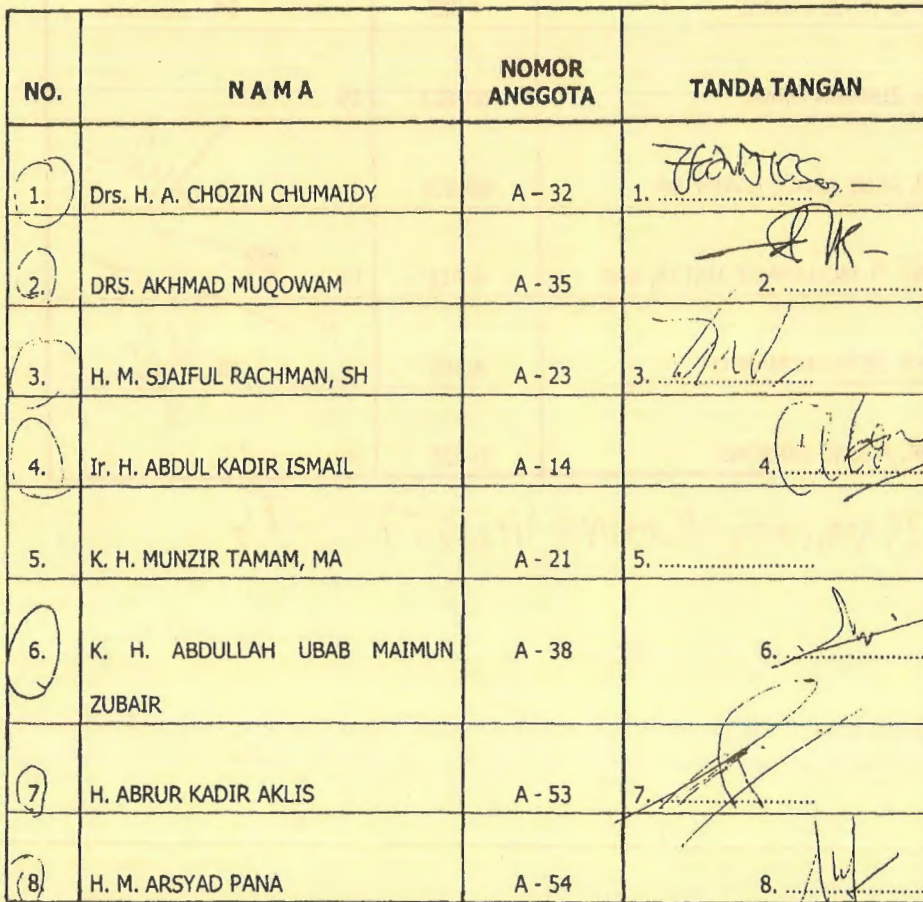 NO. NAMA NOMOR ANGGOTA TANDA TANGAN
1. Drs. H. A. CHOZIN CHUMAIDY A - 32 1. ........................
2. DRS. AKHMAD MUQOWAM A - 35 2. ........................
3. H. M. SJAIFUL RACHMAN, SH A - 23 3. ........................
4. Ir. H. ABDUL KADIR ISMAIL A - 14 4. ........................
5. K. H. MUNZIR TAMAM, MA A - 21 5. ........................
6. K. H. ABDULLAH UBAB MAIMUN A - 38 6. ........................
ZUBAIR
7 H. ABRUR KADIR AKLIS A - 53 7. ........................
8. H. M. ARSYAD PANA A - 54 8. ........................